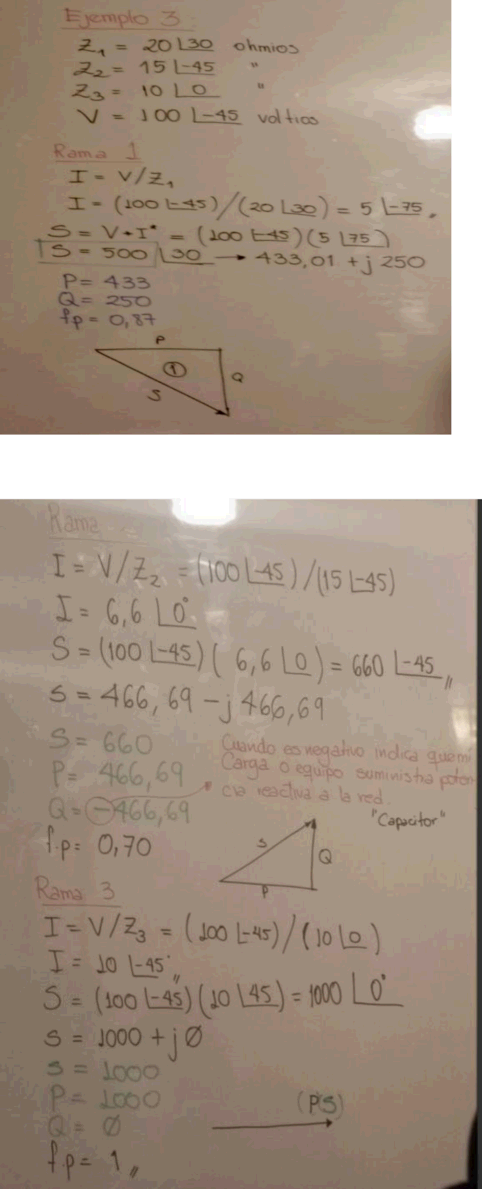 Ejemplo 3
Z1 = 20 ∠30 ohmios
Z2 = 15 ∠-45 "
Z3 = 10 ∠0 "
V = 100 ∠-45 voltios
Rama 1
I = V/Z1
I = (100 ∠-45)/(20 ∠30) = 5 ∠-75.
S = V*I* = (100 ∠-45)(5 ∠75)
S = 500 ∠30 → 433,01 + j 250
P= 433
Q= 250
fp = 0,87
P
1
S
Q
Rama
I = V/Z2 = (100 ∠-45)/(15 ∠-45)
I = 6,6 ∠0°
S = (100 ∠-45)( 6,6 ∠0) = 660 ∠-45,,
s = 466,69 - j 466,69
S = 660
P= 466,69
Q= -466,69
f.p= 0,70
Cuando es negativo indica que mi
Carga o equipo suministra poten
cia reactiva a la red.
"Capacitor"
S
Q
P
Rama 3
I = V/Z3 = (100 ∠-45)/(10 ∠0)
I = 10 ∠-45°,,
S = (100 ∠-45)(10 ∠45) = 1000 ∠0°
s = 1000 + jØ
s = 1000
P= 1000
Q= Ø
f.p= 1,,
(PS)